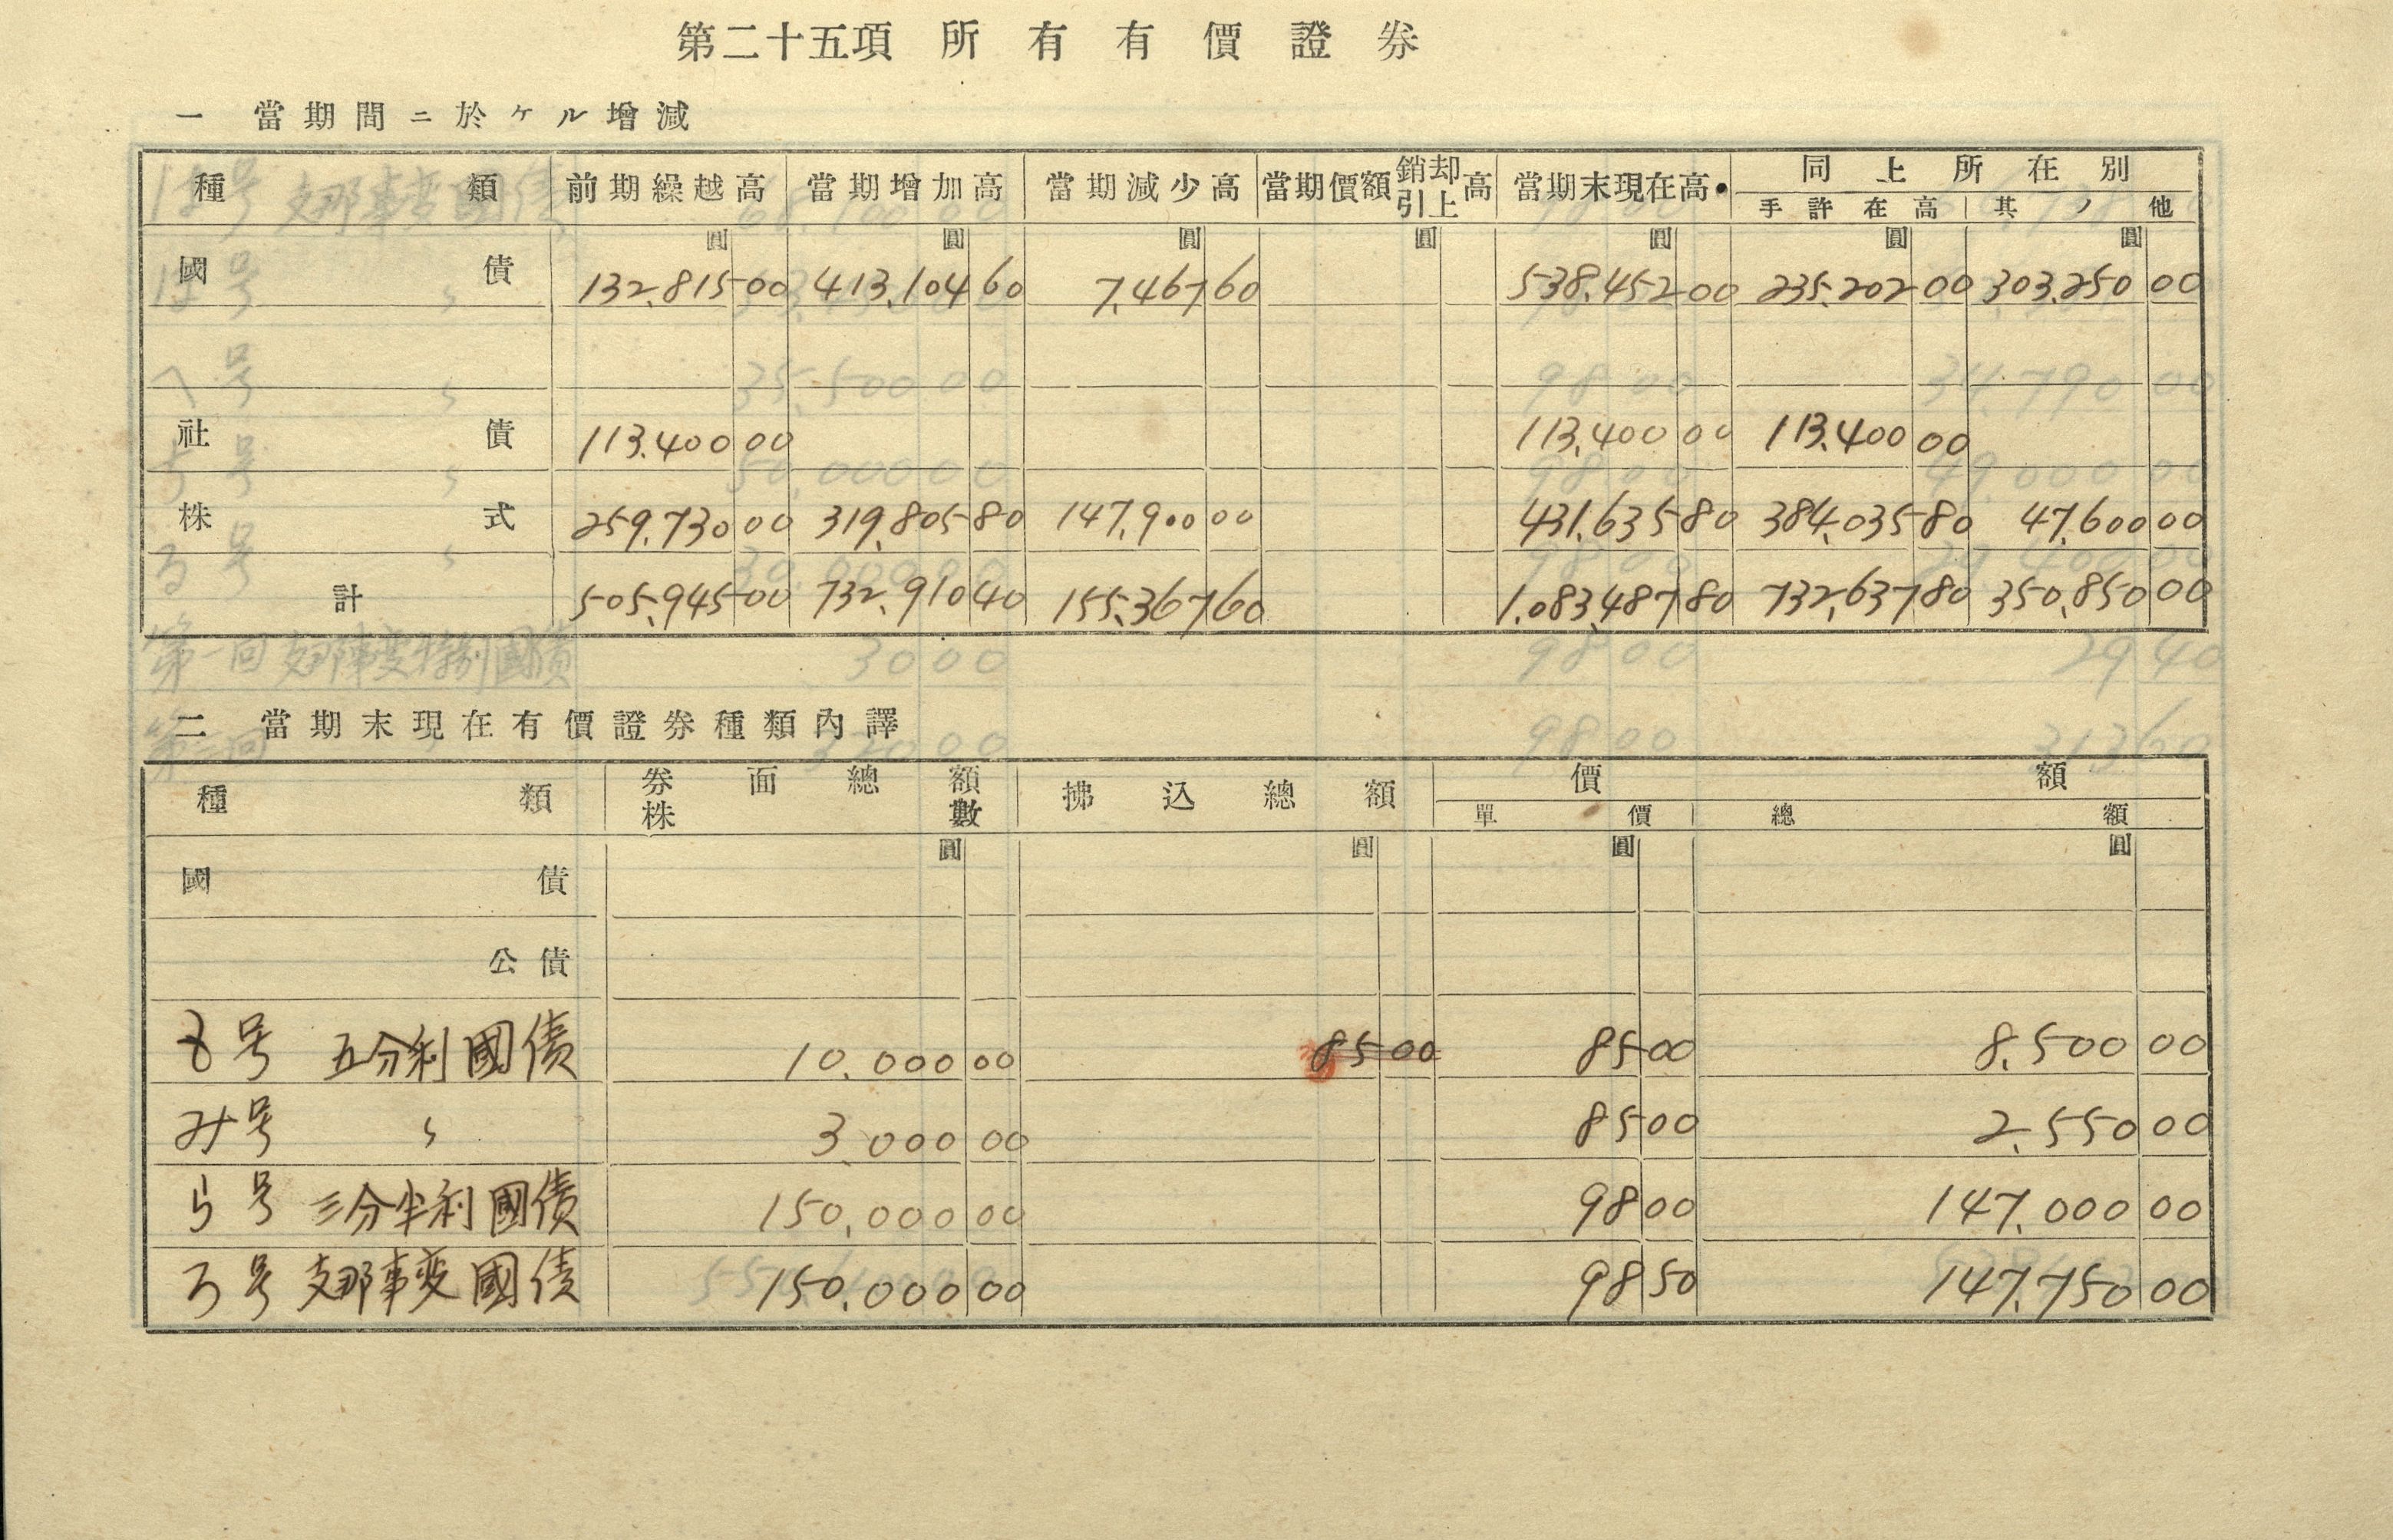 第二十五項 所有有價證券
一 當期間ニ於ケル增減
種類 前期繰越高 當期增加高 當期減少高 當期價額銷却引上高 當期末現在高 同上所在別
手許在高 其ノ他
圓 圓 圓 圓 圓 圓 圓
國債 132,815 00 413,104 60 7,467 60 538,452 00 235,202 00 303,250 00
社債 113,400 00 113,400 00 113,400 00
株式 259,730 00 319,805 80 147,900 00 431,635 80 384,035 80 47,600 00
計 505,945 00 732,910 40 155,367 60 1,083,487 80 732,637 80 350,850 00
二 當期末現在有價證券種類內譯
種類 券面總額 株數 拂込總額 價額
單價 總額
圓 圓 圓 圓
國債
公債
號 五分利國債 10,000 00 85 00 85 00 8,500 00
み号 〃 3,000 00 85 00 2,550 00
ら号 三分半利國債 150,000 00 98 00 147,000 00
ろ号 支那事変國債 150,000 00 98 50 147,750 00